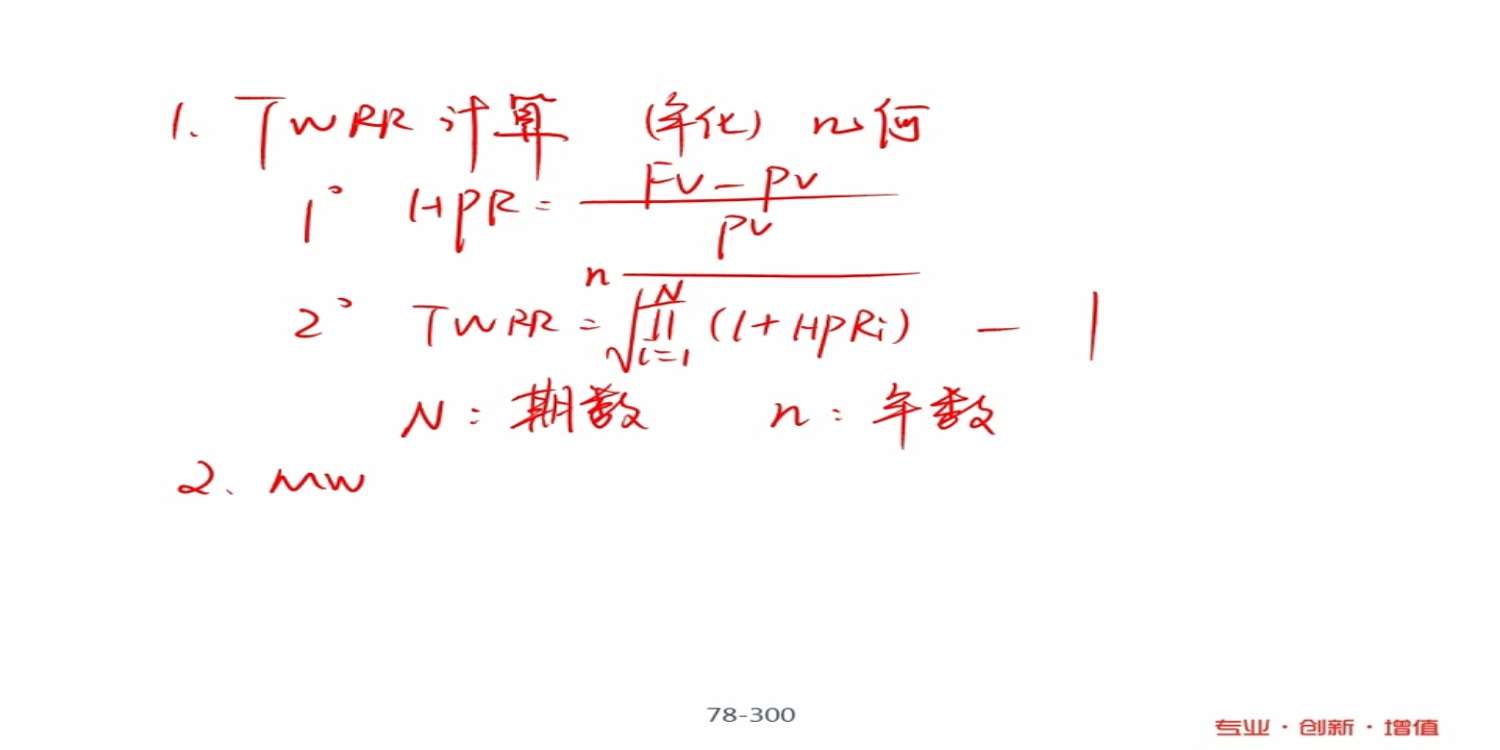 1. TWRR 计算 (年化) ~何
1° HPR = \frac{FV - PV}{PV}
2° TWRR = \sqrt[n]{\prod_{i=1}^{N} (1 + HPRi)} - 1
N: 期数 n: 年数
2. MW
78-300
专业·创新·增值